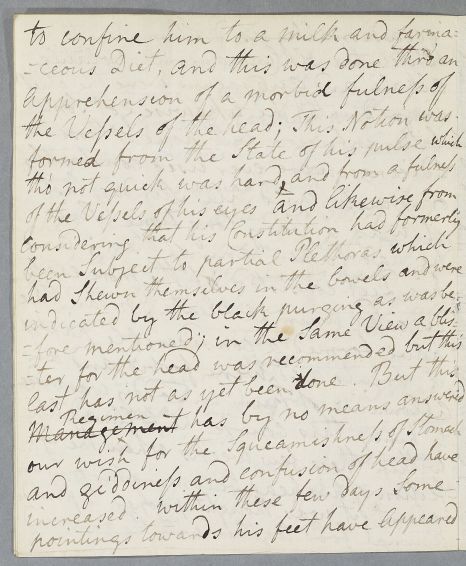 to confine him to a milk and farina=
=ceous Diet, and this was done thro' an
apprehension of a morbid fulneſs of
the Veſsels of the head; This Notion was
formed from the State of his pulse which
tho' not quick was hard, and from a fulneſs
of the Veſsels of his eyes And likewise from
Considering that his Constitution had formerly
been Subject to partial Plethoras which
had Shewn themselves in the bowels and were
indicated by the black purging as was be=
=fore mentioned; in the Same View a blis=
=ter for the head was recommended but this
last has not as yet been done. But this
Regimen
Management has by no means answered
our wish for the Squeamishneſs of Stomach
and giddineſs and confusion of head have
increased. within these few days Some
pointings towards his feet have appeared